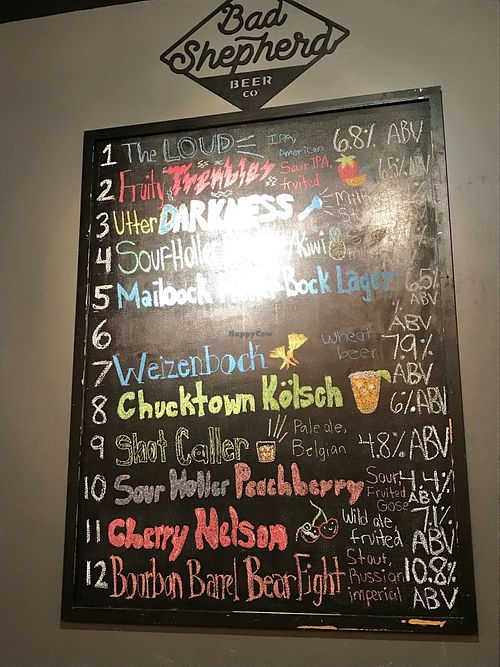 Bad
Shepherd
BEER
CO
1 The LOUD IPA, American 6.8% ABV
2 Fruity Trembles Sour IPA, fruited ABV
3 Utter DARKNESS Milk
4 Sour Holler /Kiwi
5 Maibock Bock Lager 6.5% ABV
6 ABV
7 Weizenbock wheat beer 7.9% ABV
8 Chucktown Kölsch 6% ABV
9 Shot Caller Pale ale, Belgian 4.8% ABV
10 Sour Holler Peachberry Sour Fruited Gose 4.4% ABV
11 Cherry Nelson Wild ale, fruited 7.1% ABV
12 Bourbon Barrel Bear Fight Stout, Russian imperial 10.8% ABV
HappyCow